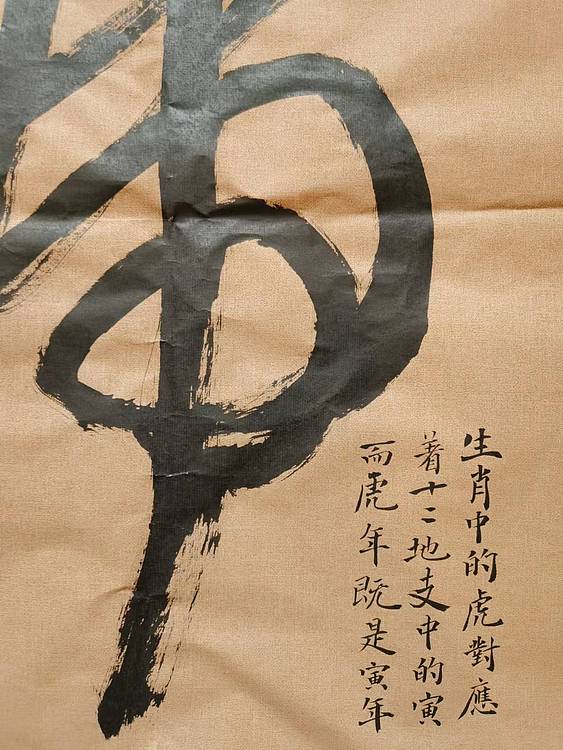 生肖中的虎對應
着十二地支中的寅
而虎年既是寅年